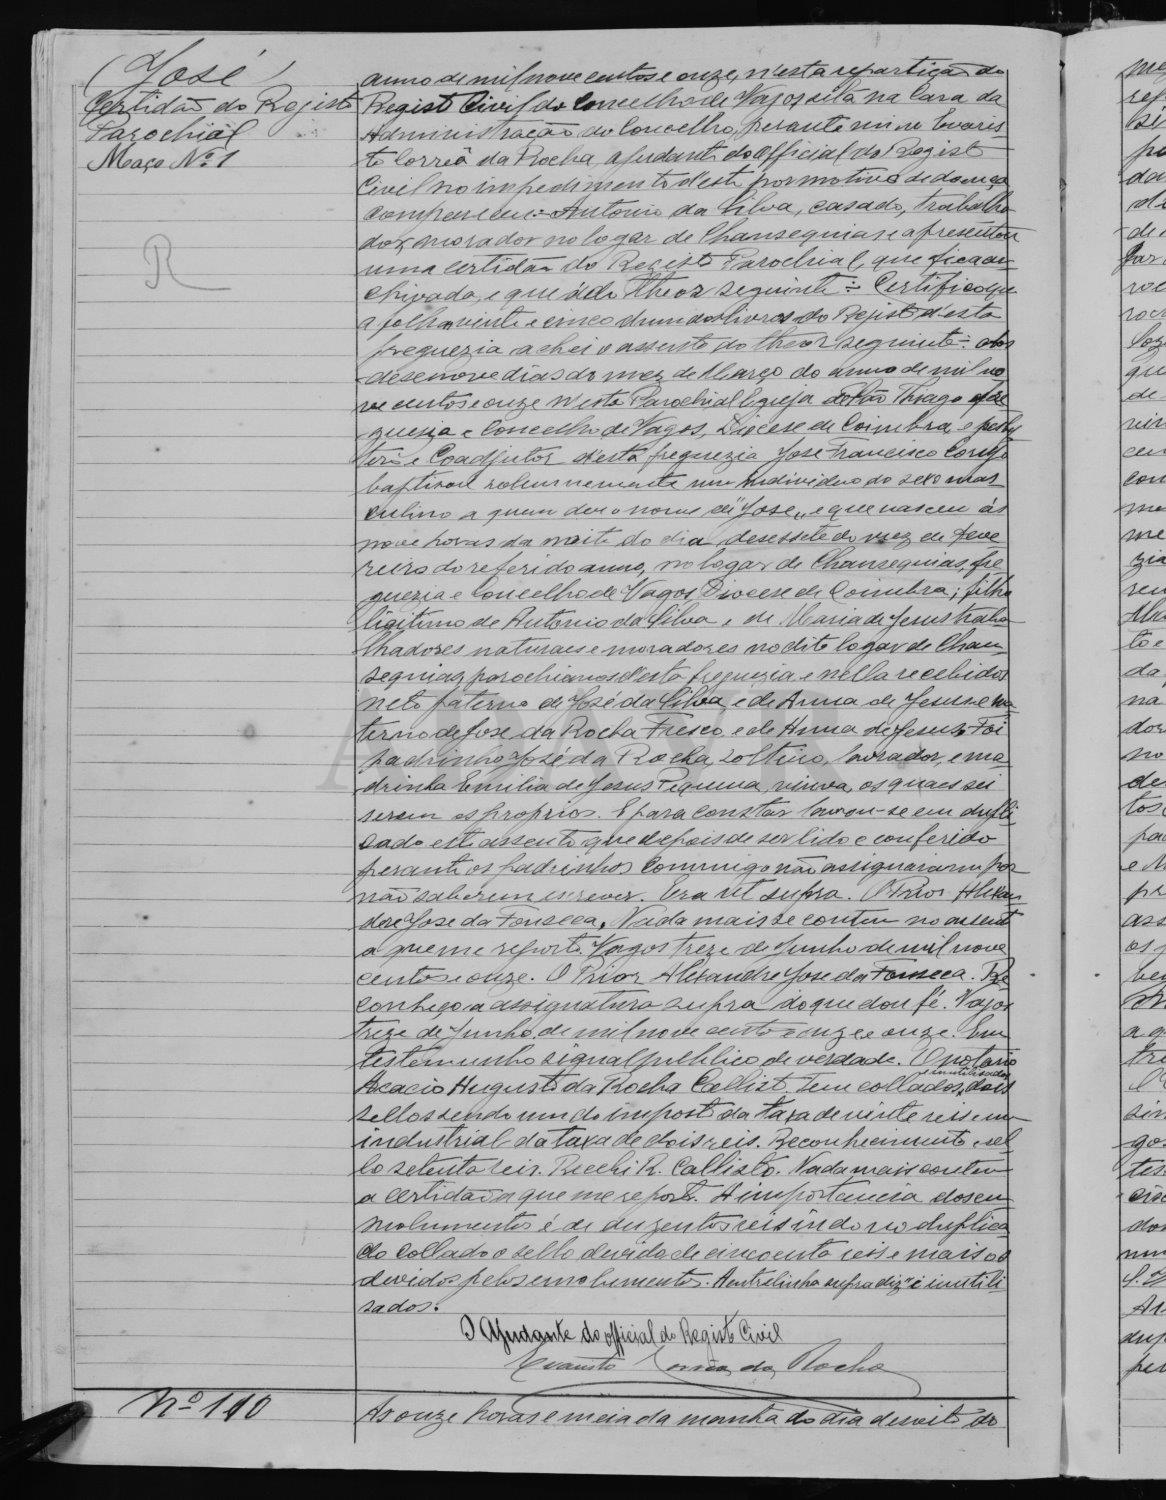 (José)
Certidão do Registo
Parochial
Maço Nº 1
R
anno de mil nove centos e onze, n'esta repartição do
Registo Civil do Concelho de Vagos, sita na Casa da
Administração do Concelho, perante mim Evaris-
to Corrêa da Rocha, ajudante do Official do Registo
Civil no impedimento d'este por motivo de doença
compareceu:- Antonio da Silva, casado, trabalha-
dor, morador no logar de Chansequias e apresentou
uma certidão do Registo Parochial, que fica ar-
chivada, e que é do theor seguinte:- Certifico que
a folhas vinte e cinco d'um dos livros do Registo d'esta
freguezia achei o assento do theor seguinte:- Aos
desenove dias do mez de Março do anno de mil no
ve centos e onze n'esta Parochial Egreja de São Thiago fre
guezia e Concelho de Vagos, Diocese de Coimbra, o presby
tero e Coadjutor d'esta freguezia José Francisco Corujo
baptisou solemnemente um individuo do sexo mas
culino a quem deu o nome de "José" e que nasceu ás
nove horas da noite do dia desessete do mez de Feve
reiro do referido anno, no logar de Chansequias, fre
guezia e Concelho de Vagos Diocese de Coimbra; filho
legitimo de Antonio da Silva e de Maria de Jesus traba
lhadores naturaes e moradores no dito logar de Chan-
sequias parochianos d'esta freguezia e nella recebidos
neto paterno de José da Silva e de Anna de Jesus e ma
terno de José da Rocha Fresco e de Anna de Jesus. Foi
padrinho José da Rocha, solteiro, lavrador, e ma-
drinha Emilia de Jesus Pequena, viuva, os quaes sei
serem os proprios. E para constar lavrou-se em dupli
cado este assento que depois de ser lido e conferido
perante os padrinhos commigo não assignaram por
não saberem escrever. Era ut supra. O Prior Alexan
dre José da Fonseca. Nada mais se contem no assento
a que me reporto. Vagos treze de Junho de mil nove
centos e onze. O Prior Alexandre José da Fonseca. Re-
conheço a assignatura supra do que dou fé. Vagos
treze de Junho de mil nove cento e onze e onze. Em
testemunho signal publico de verdade. O notario
e inutilisados
Acacio Augusto da Rocha Callisto. Tem collados, dois
sellos sendo um do imposto da taxa de vinte reis e um
industrial da taxa de dois reis. Reconhecimento e sel
lo setenta reis. Recebi R. Callisto. Nada mais contem
a certidão a que me reporto. A importancia dos emo
molumentos é de duzentos reis indo no duplica
do collado o sello devido de cincoenta reis e mais os
devidos pelos emolumentos. A entrelinha supra diz "e inutili
sados.
O Ajudante do official do Registo Civil
Evaristo Corrêa da Rocha
Nº 110
As onze horas e meia da manhã do dia desoito do